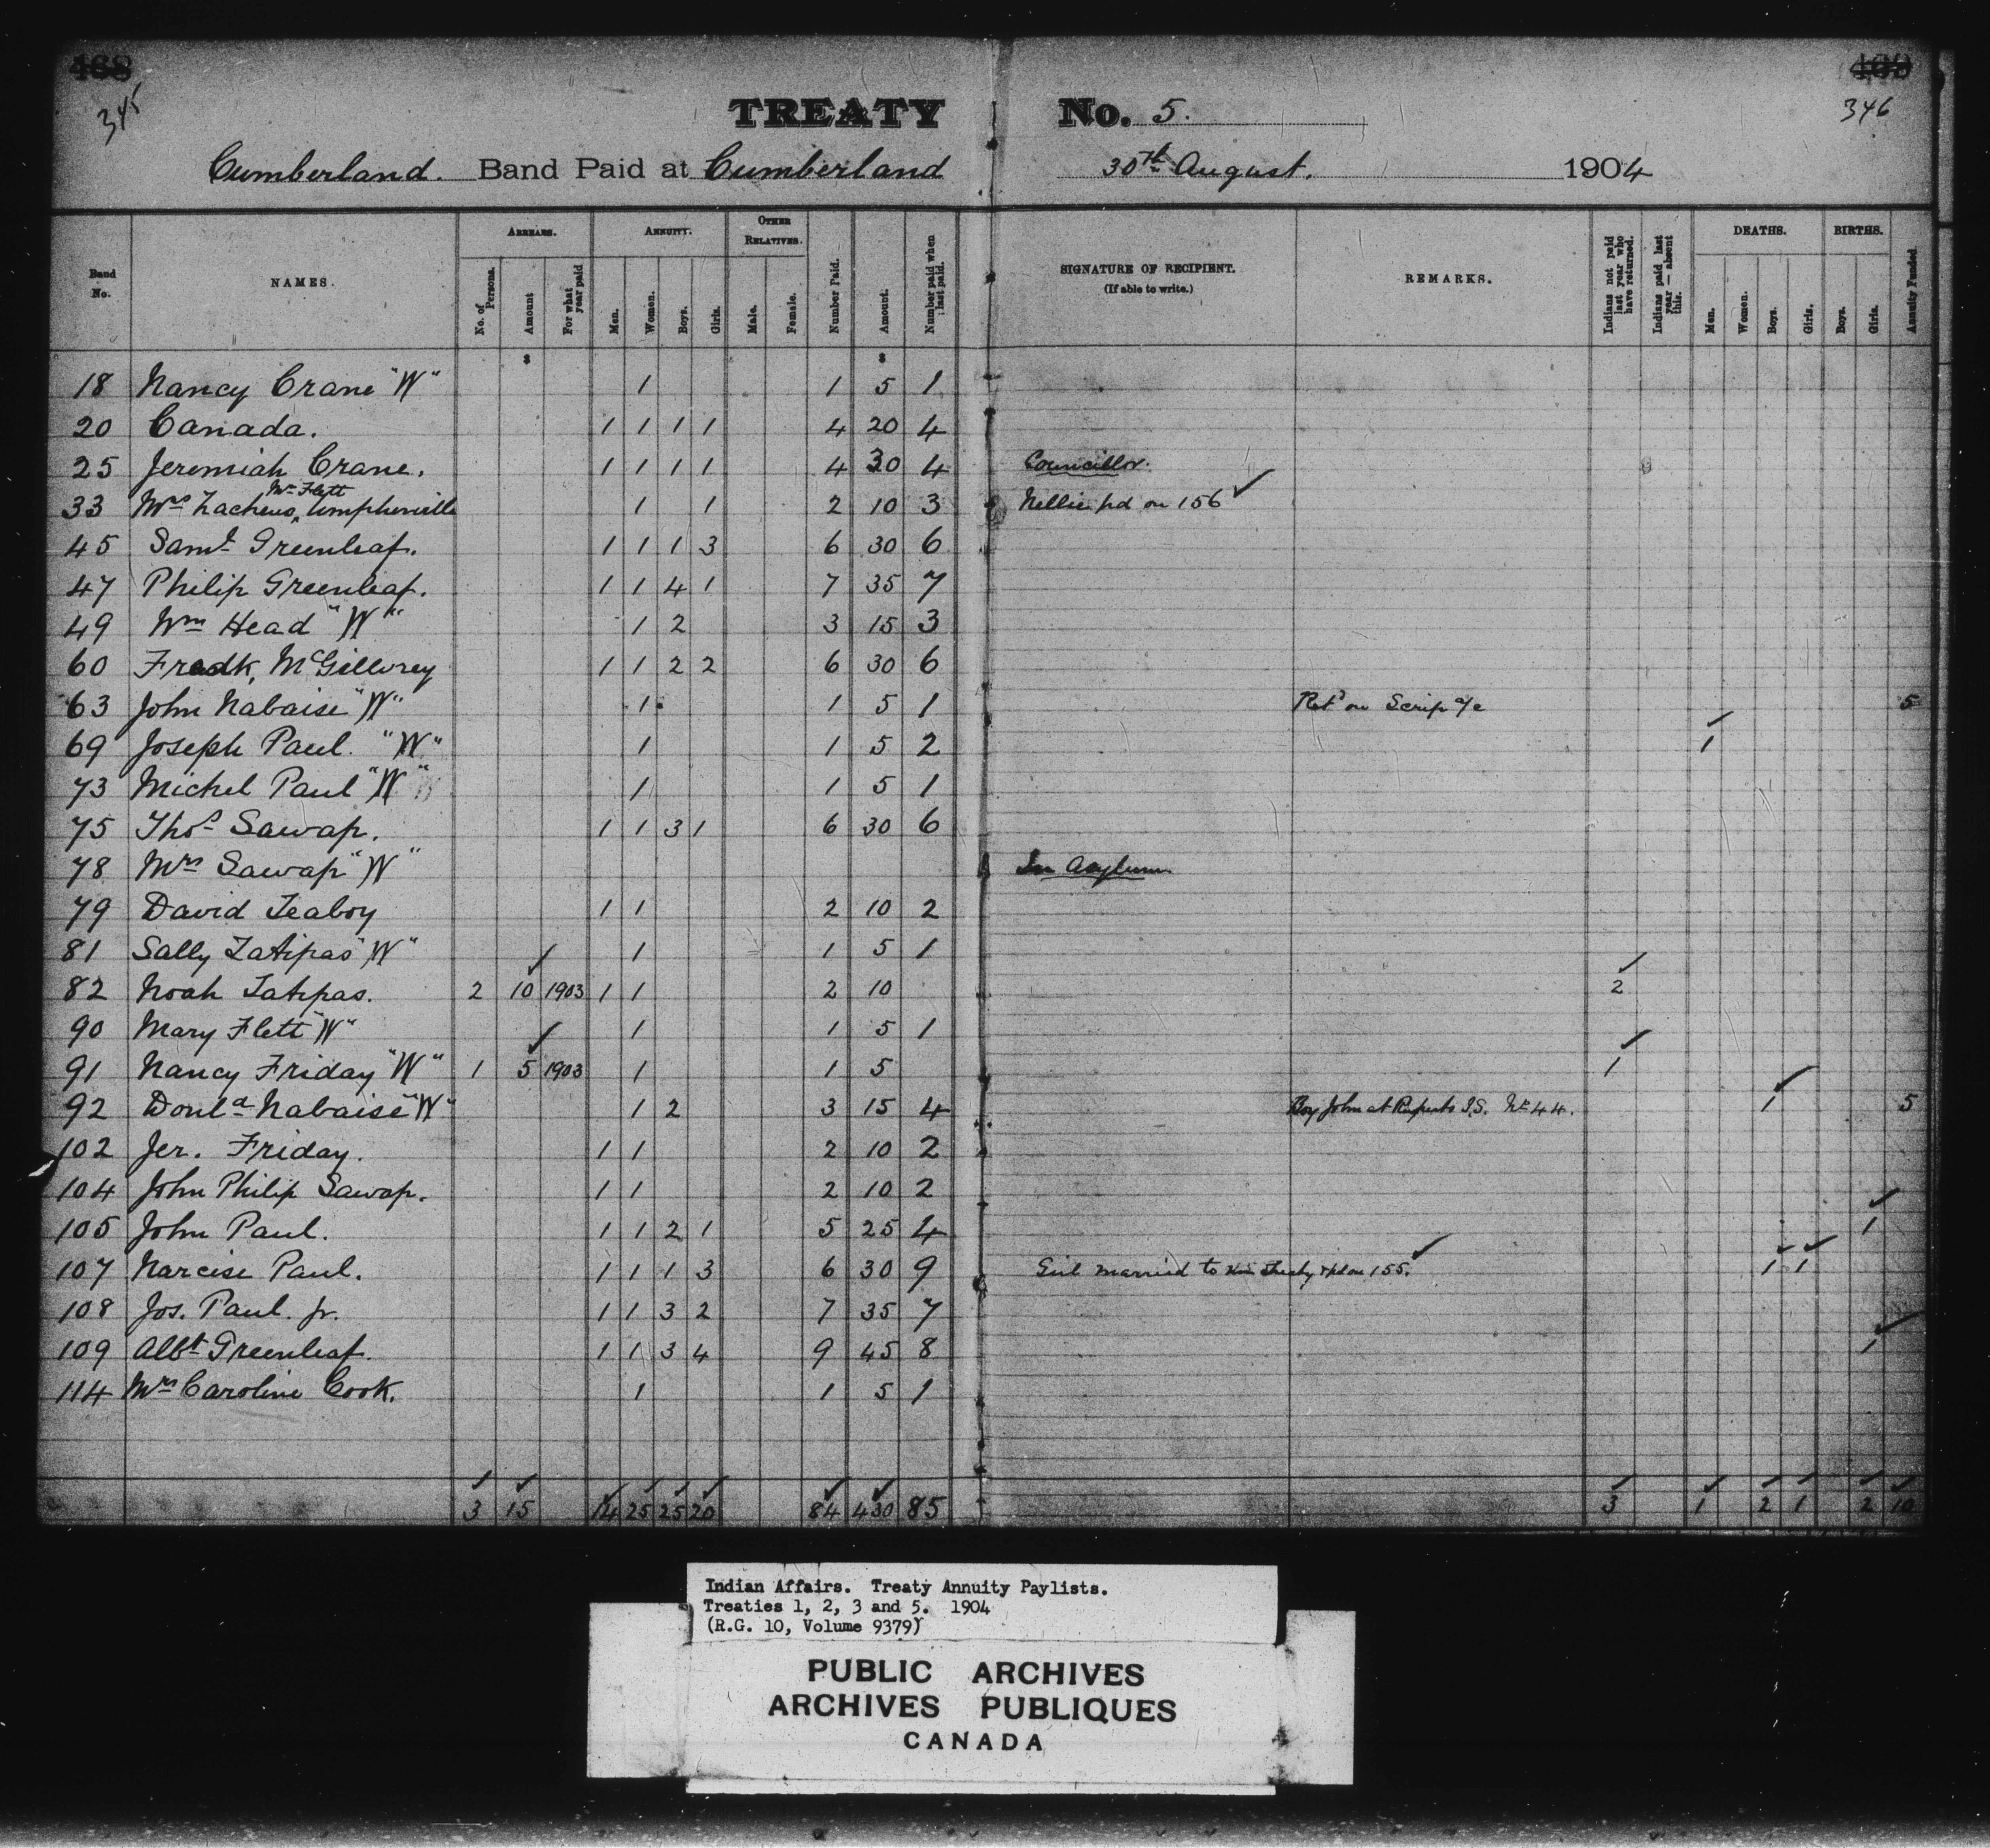 468
345
TREATY No. 5.
468
346
Cumberland. Band Paid at Cumberland 30th August. 1904
Band No.
NAMES.
ARREARS.
No. of Persons.
Amount
For what year paid
ANNUITY.
Men.
Women.
Boys.
Girls.
OTHER RELATIVES.
Male.
Female.
Number Paid.
Amount.
Number paid when last paid.
SIGNATURE OF RECIPIENT.
(If able to write.)
REMARKS.
Indians not paid last year who have returned.
Indians paid last year — absent this.
DEATHS.
Men.
Women.
Boys.
Girls.
BIRTHS.
Boys.
Girls.
Annuity Funded.
$ $
18 Nancy Crane "W" 1 1 5 1
20 Canada. 1 1 1 1 4 20 4
25 Jeremiah Crane. 1 1 1 1 4 30 4 Councillor.
33 Mrs Zacheus Wm Flett Umpherville 1 1 2 10 3 Nellie pd on 156 ✓
45 Saml Greenleaf. 1 1 1 3 6 30 6
47 Philip Greenleaf. 1 1 4 1 7 35 7
49 Wm Head "W" 1 2 3 15 3
60 Fredk, McGillvrey 1 1 2 2 6 30 6
63 John Nabaise "W" 1 1 5 1 Retd on Scrip a/c 5
69 Joseph Paul. "W" 1 1 5 2 ✓ 1
73 Michel Paul "W" 1 1 5 1
75 Thos Sawap. 1 1 3 1 6 30 6
78 Mrs Sawap "W" In Asylum
79 David Teaboy 1 1 2 10 2
81 Sally Tatipas "W" 1 1 5 1
82 Noah Tatipas. 2 ✓ 10 1903 1 1 2 10 ✓ 2
90 Mary Flett "W" 1 1 5 1
91 Nancy Friday "W" 1 ✓ 5 1903 1 1 5 ✓ 1
92 Donld Nabaise "W" 1 2 3 15 4 Boy John at Ruperts I.S. No 44. ✓ 1 5
102 Jer. Friday. 1 1 2 10 2
104 John Philip Sawap. 1 1 2 10 2
105 John Paul. 1 1 2 1 5 25 4 ✓ 1
107 Narcise Paul. 1 1 1 3 6 30 9 Girl married to Treaty & pd on 155. ✓ ✓ 1 ✓ 1
108 Jos. Paul. Jr. 1 1 3 2 7 35 7
109 Albt Greenleaf. 1 1 3 4 9 45 8 ✓ 1
114 Mrs Caroline Cook. 1 1 5 1
✓ ✓ ✓ ✓ ✓ ✓ ✓ ✓ ✓ ✓ ✓ ✓ ✓ ✓
3 15 14 25 25 20 84 430 85 3 1 2 1 2 10
Indian Affairs. Treaty Annuity Paylists.
Treaties 1, 2, 3 and 5. 1904
(R.G. 10, Volume 9379)
PUBLIC ARCHIVES
ARCHIVES PUBLIQUES
CANADA